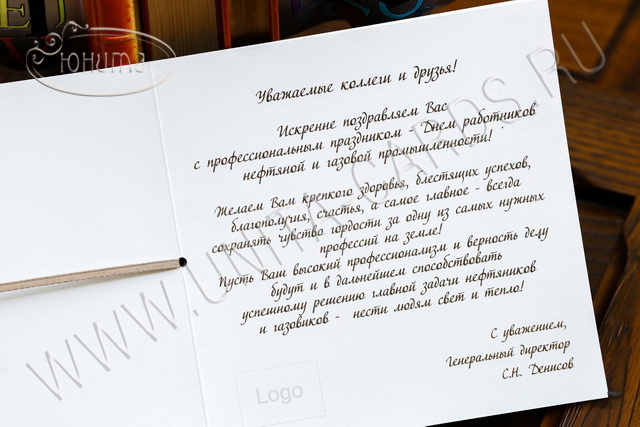 Юнита
Уважаемые коллеги и друзья!
Искренне поздравляем Вас
с профессиональным праздником - Днем работников
нефтяной и газовой промышленности!
Желаем Вам крепкого здоровья, блестящих успехов,
благополучия, счастья, а самое главное - всегда
сохранять чувство гордости за одну из самых нужных
профессий на земле!
Пусть Ваш высокий профессионализм и верность делу
будут и в дальнейшем способствовать
успешному решению главной задачи нефтяников
и газовиков - нести людям свет и тепло!
С уважением,
Генеральный директор
С.Н. Денисов
Logo
WWW.UNITA-CARDS.RU